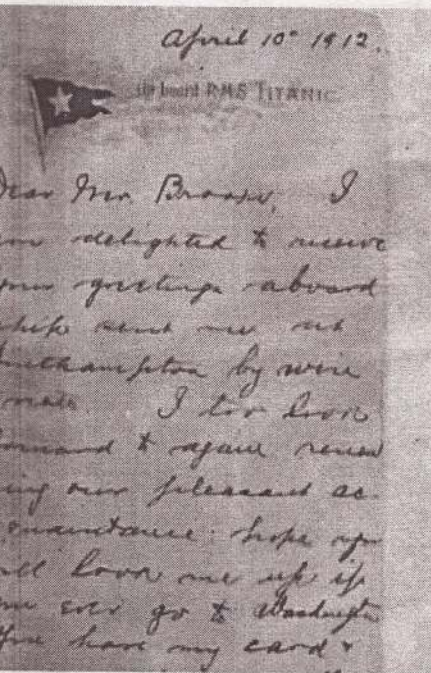 April 10" 1912.
On board RMS TITANIC.
Dear Mr Brooks, I
am delighted to receive
your greetings aboard
ship sent me at
Southampton by wire
I too look
forward to again renew
ing our pleasant ac-
quaintance. hope you
will look me up if
you ever go to Washington
You have my card &